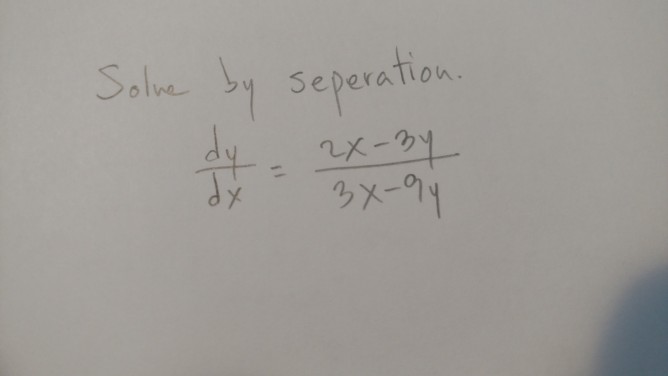 Solve by seperation.
dy/dx = (2x-3y)/(3x-9y)